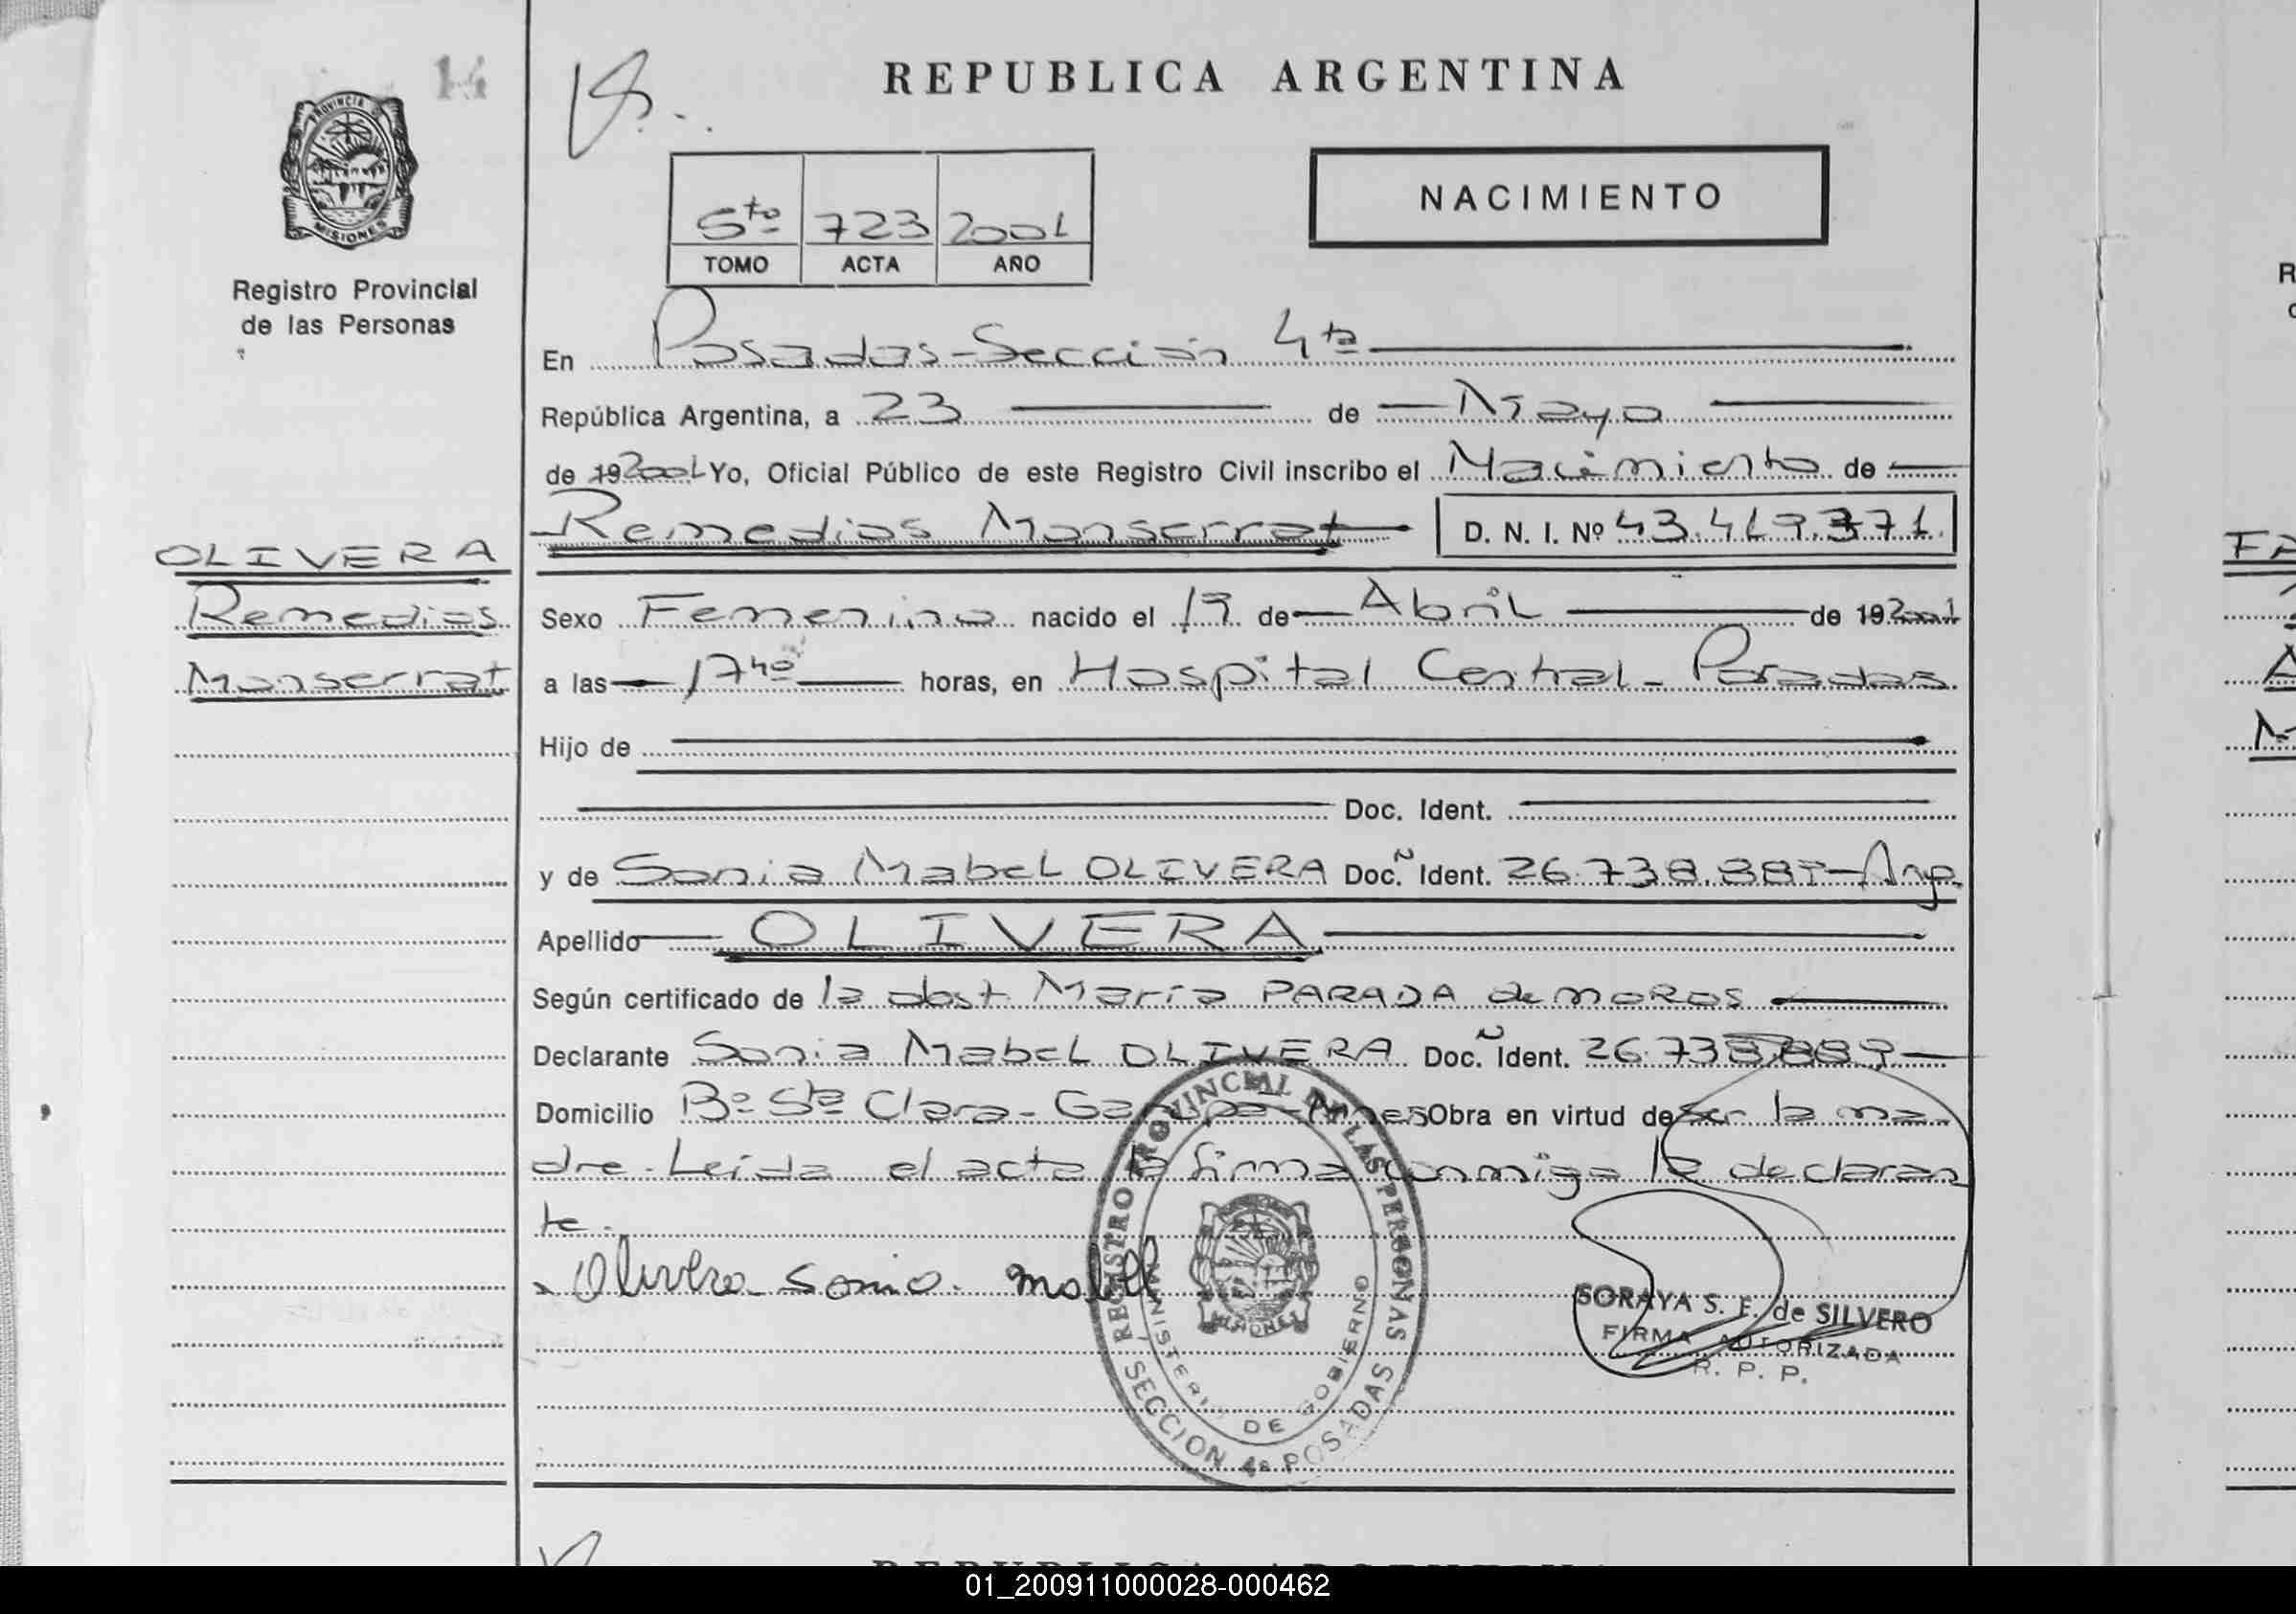 14
PROVINCIA DE
MISIONES
Registro Provincial
de las Personas
OLIVERA
Remedios
Monserrat
REPUBLICA ARGENTINA
NACIMIENTO
5to 723 2001
TOMO ACTA AÑO
En Posadas-Sección 4ta
República Argentina, a 23 de Mayo
de 19 2001 Yo, Oficial Público de este Registro Civil inscribo el Nacimiento de
Remedios Monserrat D. N. I. Nº 43.419.371.
Sexo Femenino nacido el 19 de Abril de 19 2001
a las 17 40 horas, en Hospital Central - Posadas
Hijo de
Doc. Ident.
y de Sonia Mabel OLIVERA Doc. Ident. 26.738.889-Arg.
Apellido OLIVERA
Según certificado de la obst. María PARADA de MOROS
Declarante Sonia Mabel OLIVERA Doc. Ident. 26.738.889-
Domicilio Bº Sta Clara - Garupá - Mnes Obra en virtud de ser la ma-
dre. Leída el acta la firma conmigo la declaran
te.
Olivera Sonia Mabel
REGISTRO PROVINCIAL DE LAS PERSONAS
MINISTERIO DE GOBIERNO
SECCION 4ª POSADAS
MISIONES
SORAYA S. E. de SILVERO
FIRMA AUTORIZADA
R. P. P.
REPUBLICA ARGENTINA
01_200911000028-000462